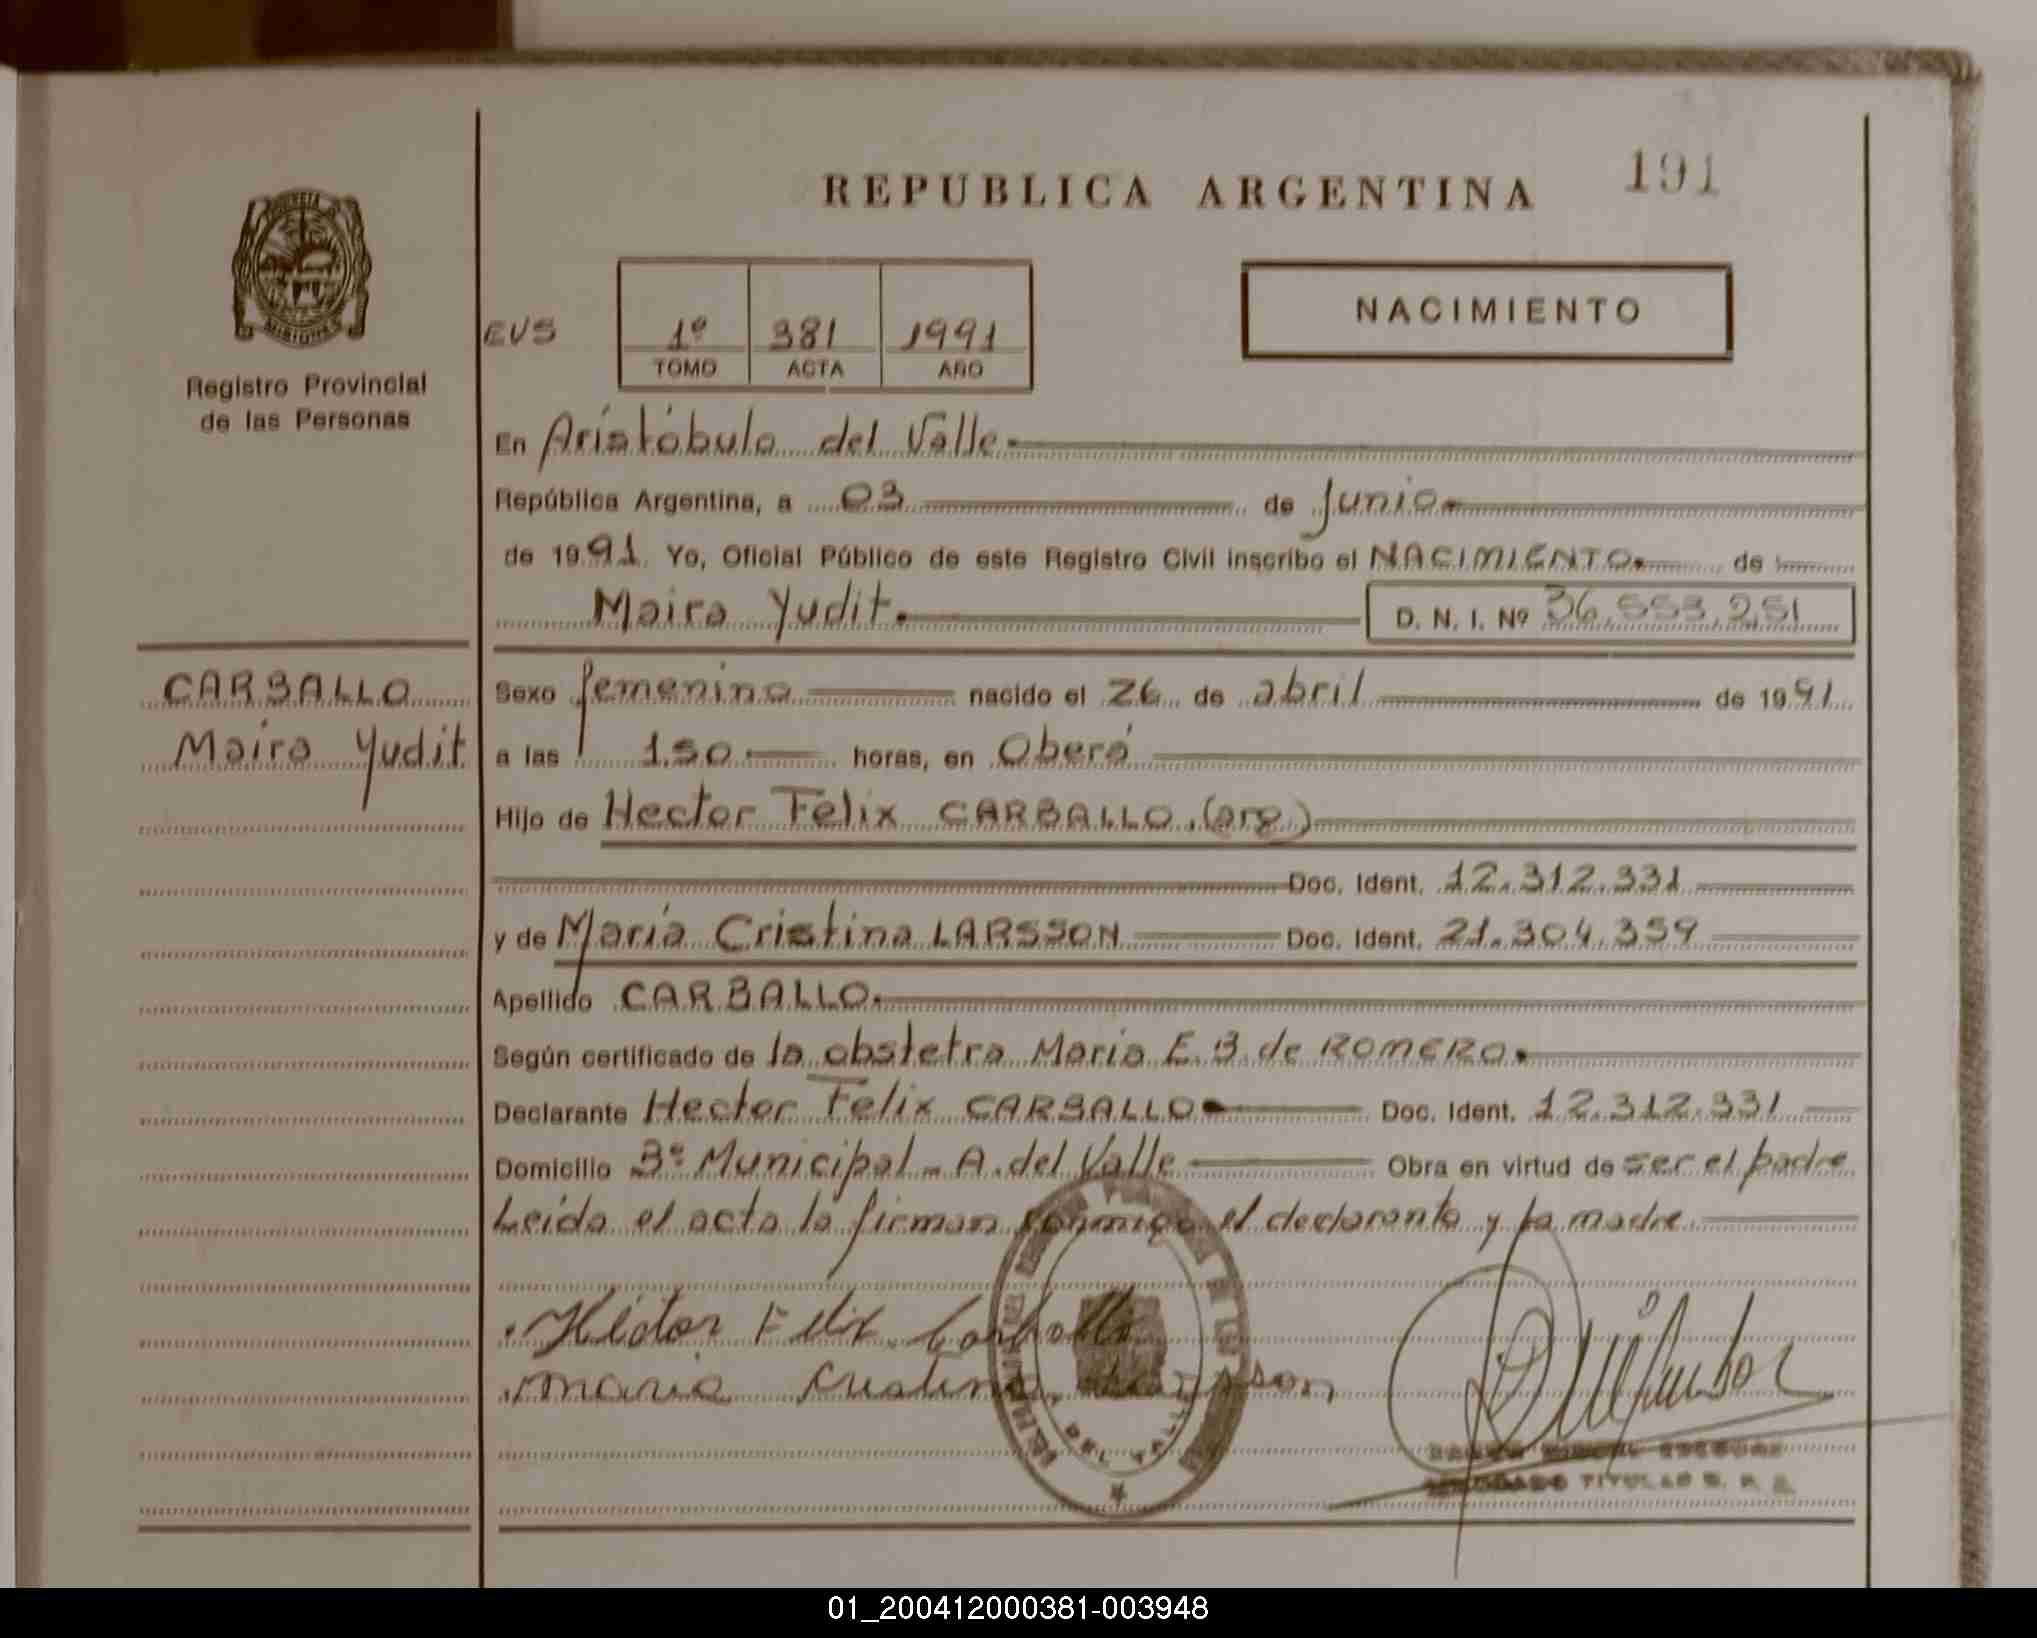 191
REPUBLICA ARGENTINA
NACIMIENTO
EVS
1º 381 1991
TOMO ACTA AÑO
MISIONES
Registro Provincial
de las Personas
CARBALLO
Maira Yudit
En Aristóbulo del Valle.
República Argentina, a 03 de Junio.
de 1991 Yo, Oficial Público de este Registro Civil inscribo el NACIMIENTO. de
Maira Yudit. D. N. I. Nº 36.553.251
Sexo femenino nacido el 26 de abril de 1991
a las 1.50 horas, en Oberá
Hijo de Hector Felix CARBALLO. (arg)
Doc. Ident. 12.312.331
y de María Cristina LARSSON Doc. Ident. 21.304.359
Apellido CARBALLO.
Según certificado de la obstetra Maria E. B. de ROMERO.
Declarante Hector Felix CARBALLO Doc. Ident. 12.312.331
Domicilio Bº Municipal - A. del Valle Obra en virtud de ser el padre
Leida el acta la firman conmigo el declarante y la madre.
Héctor Felix Carballo
maria cristina larsson
DEL VALLE
TITULAR R. P. P.
01_200412000381-003948